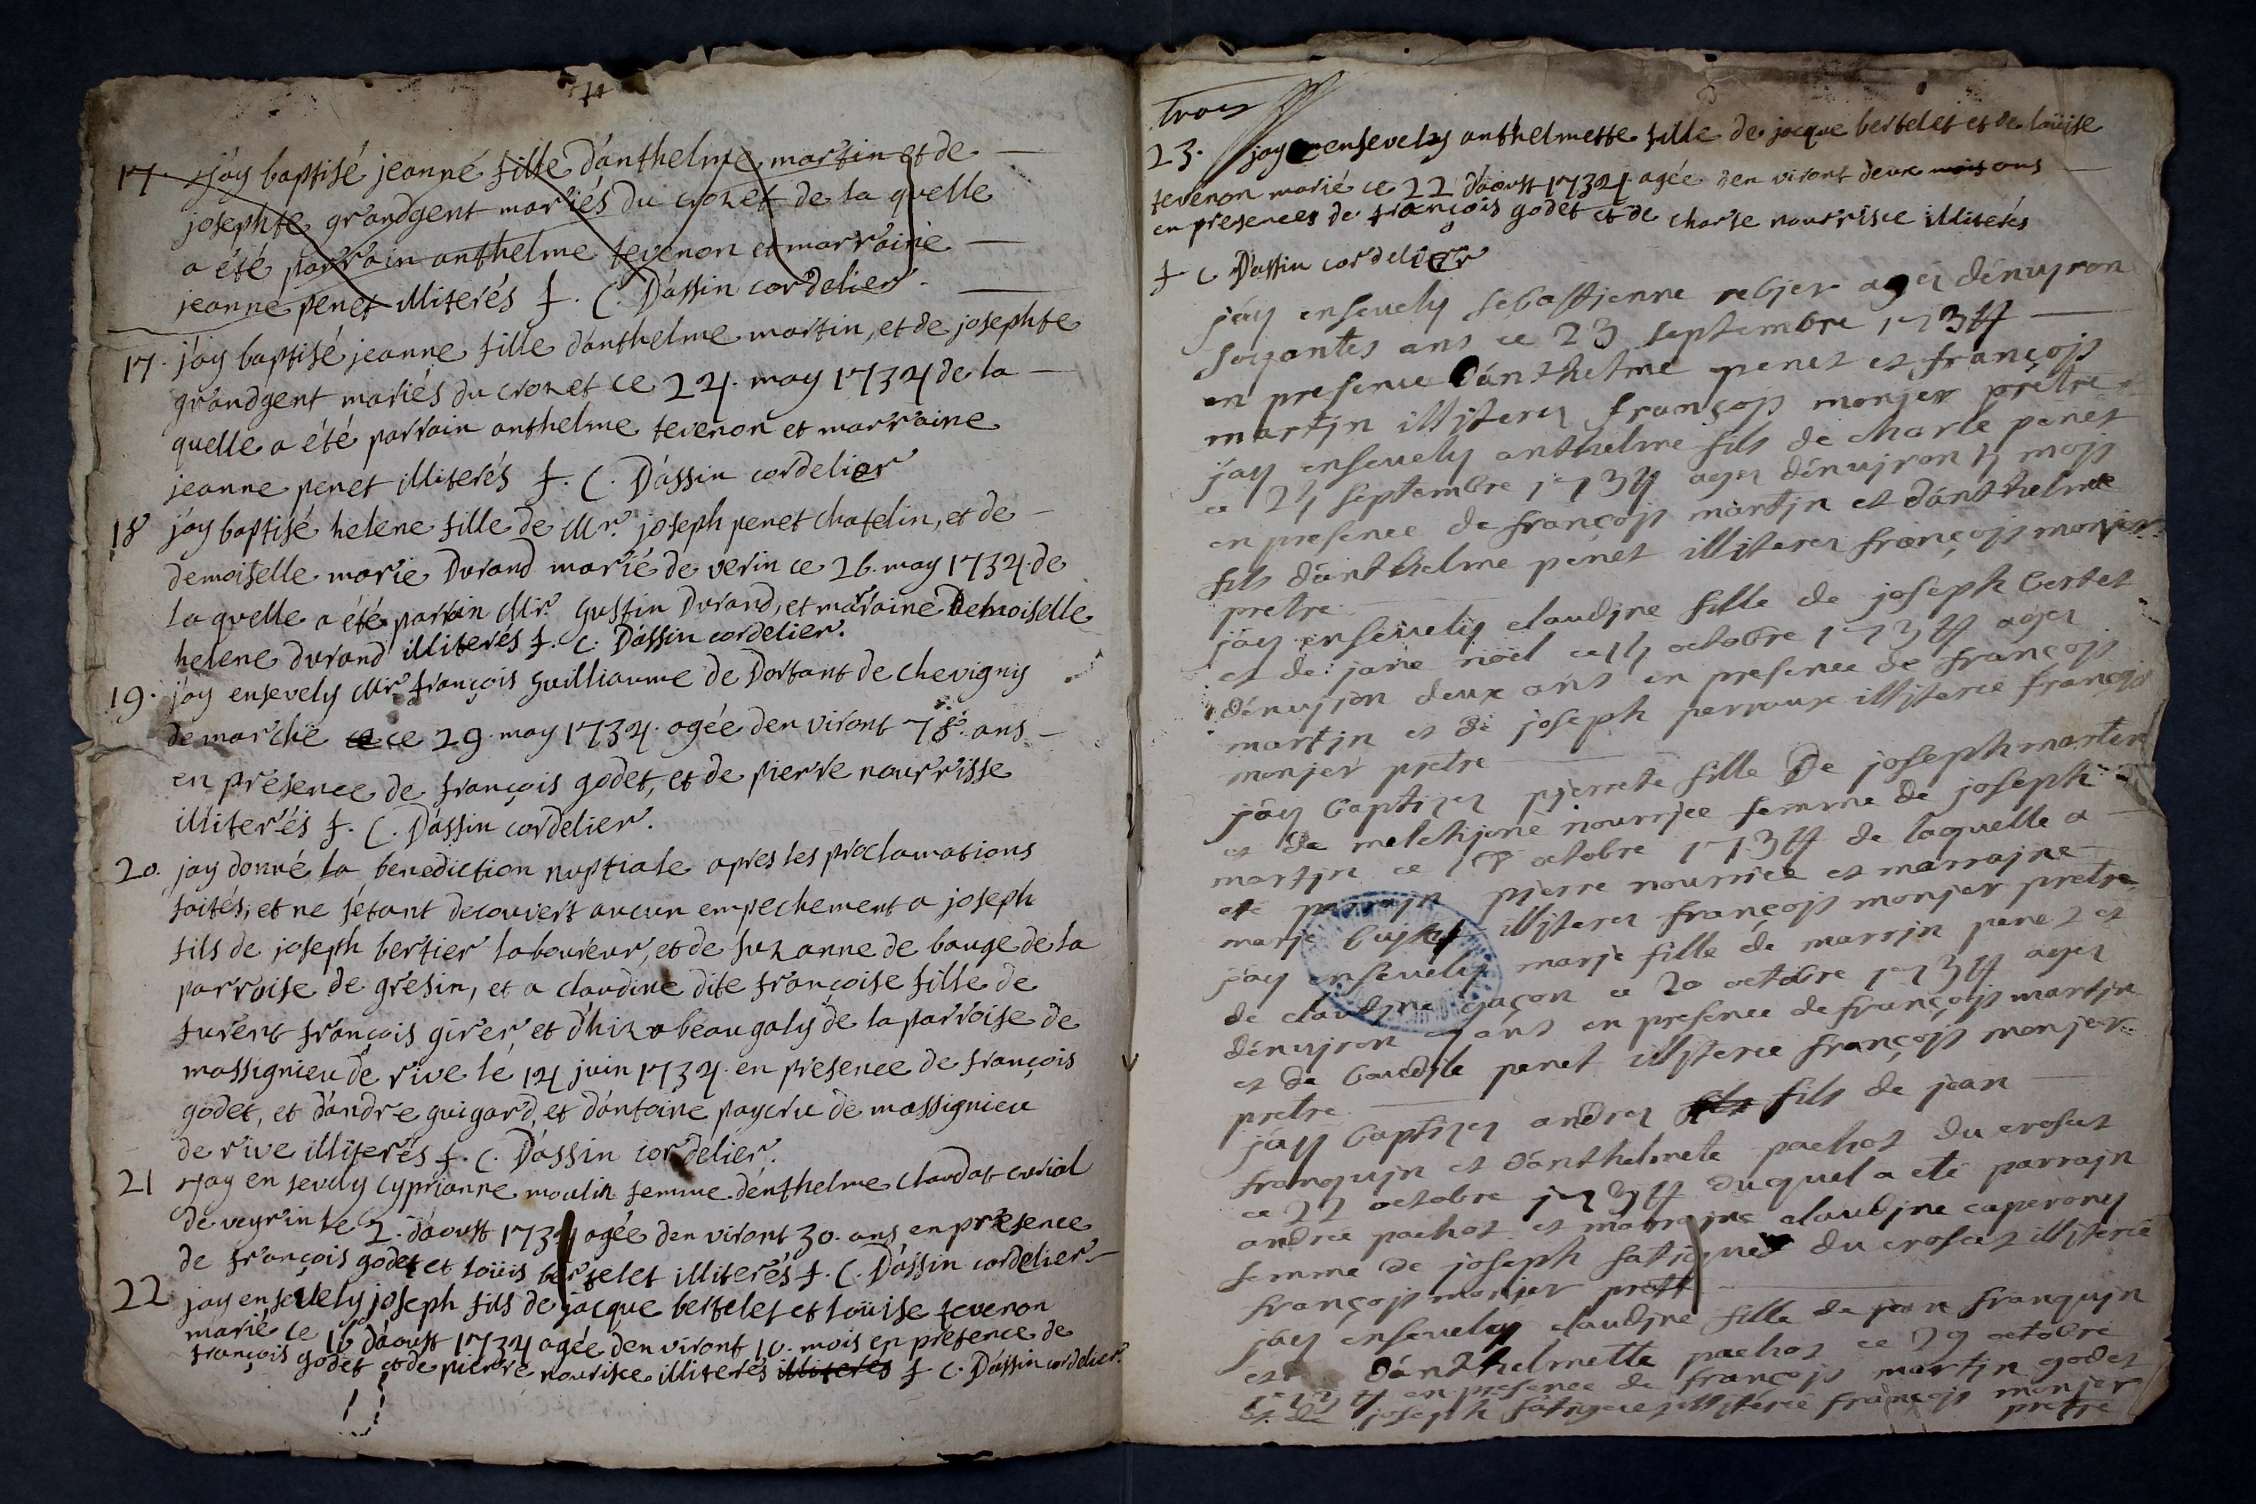 17. jay baptisé jeanne fille danthelme martin et de
josephte grandgent mariés du crozet de la quelle
a été parrain anthelme tevenon et marraine
jeanne penet illiterés f. C. Dassin cordelier.
17. jay baptisé jeanne fille danthelme martin, et de josephte
grandgent mariés du crozet ce 24. may 1734 de la
quelle a été parrain anthelme tevenon et marraine
jeanne penet illiterés f. C. Dassin cordelier
18 jay baptisé helene fille de Mr. joseph penet chatelin, et de
demoiselle marie Durand marié de verin ce 26. may 1734. de
laquelle a été parrain Mr. Gustin Durand, et maraine Demoiselle
helene durand illiterés f. C. Dassin cordelier.
19. jay ensevely Mr. françois Guilliaume de Dortant de chevignis
de marche ce ce 29. may 1734. agée den viront 78. ans
en présence de françois godet, et de pierre nourrisse
illiterés f. C. Dassin cordelier.
20. jay donné la benediction nuptiale apres les proclamations
faités, et ne sétant decouvert aucun empechement a joseph
fils de joseph bertier laboureur, et de suzanne de bauge de la
parroise de gresin, et a claudine dite françoise fille de
furent françois girer, et dhiza beaugaly de la parroise de
massignieu de rive le 14 juin 1734. en présence de françois
godet, et dandre guigard, et dantoine payeru de massignieu
de rive illiterés f. C. Dassin cordelier.
21 jay en sevely cyprianne moulin femme denthelme claudat curial
de veyrin le 2. daoust 1734 agée den viront 30. ans en présence
de françois godet et loüis bertelet illiterés f. C. Dassin cordelier
22 jay ensevely joseph fils de jacque bertelet et loüise tevenon
marié ce 16 daoust 1734 agée den viront 10. mois en présence de
françois godet et de pierre nourisce illiterés illiterés f C. Dassin cordelier.
trois
23. jay ensevely anthelmette fille de jacque bertelet et de loüise
tevenon marié ce 22 daoust 1734. agée den viront deux mois ans
en présences de françois godet et de charle nourrisce illiterés
f C Dassin cordelier
jay ensevely sebastjenne rebjer agéz dénujron
soyantes ans ce 23 septembre 1734
en presence dánthelme penet et françojs
martjn illjterez françojs monjer prêtre
jay ensevely anthelme fils de charle penet
ce septembre 1734 agez dénujron mojs
en presence de françojs martjn et dánthelme
fils dánthelme penet illjterez françojs monjer
prêtre
jay ensevely claudjne fille de joseph bertet
et de jane noël ce octobre 1734 agez
dénujron deux ans en presence de françojs
martjn et de joseph perroux illjterée françojs
monjer pretre
jay baptizez pjerrete fille De joseph marten
et de melchjone nourrjce femme de joseph
martjn ce 18 octobre 1734 de laquelle a
eté parrajn pjerre nourrice et marrajne
marje illjterez françojs monjer pretre
jay ensevely marje fille de marrjn penet et
de claudjne gaçon ce 20 octobre 1734 agez
dénujron ans en presence de françojs martjn
et de penet illjterée françojs monjer
pretre
jay baptizez andrez fils fils de jean
franqujn et dánthelmete pachot du croset
ce 22 octobre 1734 duquel a eté parrajn
andrée pachot et marrajne claudjne caperony
femme de joseph du croset illjterée
françojs monjer
jay ensevely claudjne fille de jean franqujn
et dánthelmette pachot ce 29 octobre
1734 en presence de françojs martjn godet
et de joseph illjterée françojs monjer
pretre